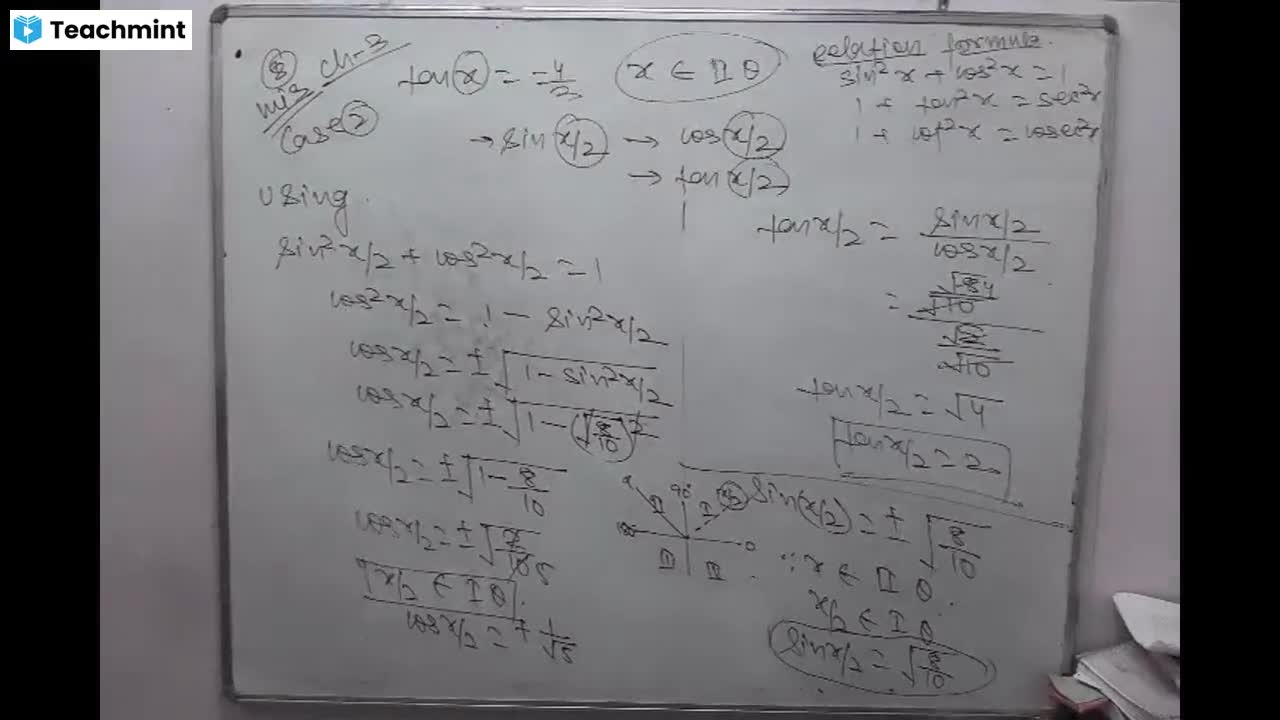 Teachmint
8
mis ch-3
Case 2
tan(x) = -4/3
x ∈ II Q
relation formula.
sin²x + cos²x = 1
1 + tan²x = sec²x
1 + cot²x = cosec²x
→ sin(x/2) → cos(x/2)
→ tan(x/2)
using.
sin²x/2 + cos²x/2 = 1
cos²x/2 = 1 - sin²x/2
cosx/2 = ± √1 - sin²x/2
cosx/2 = ± √1 - (√8/10)²
cosx/2 = ± √1 - 8/10
cosx/2 = ± √2/10 5
x/2 ∈ I Q.
cosx/2 = + 1/√5
tanx/2 = sinx/2 / cosx/2
= √8 4/√10 / √2/√10
tanx/2 = √4
tanx/2 = 2
90°
II I x/2
0
III
sin(x/2) = ± √8/10
∵ x ∈ II Q.
x/2 ∈ I Q
sinx/2 = √8/10